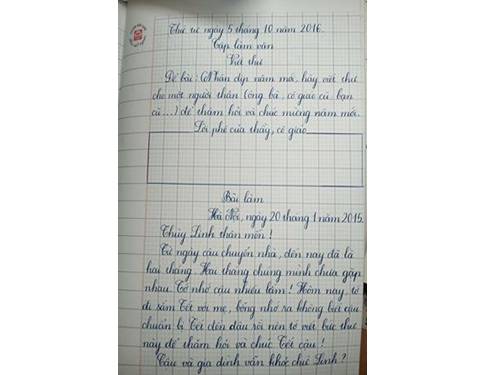 Thứ tư ngày 5 tháng 10 năm 2016.
Tập làm văn
Viết thư
Đề bài: Nhân dịp năm mới, hãy viết thư
cho một người thân (ông bà, cô giáo cũ bạn
cũ...) để thăm hỏi và chúc mừng năm mới.
Lời phê của thầy, cô giáo
Bài làm
Hà Nội, ngày 20 tháng 1 năm 2015.
Thùy Linh thân mến!
Từ ngày cậu chuyển nhà, đến nay đã là
hai tháng. Hai tháng chúng mình chưa gặp
nhau. Tớ nhớ cậu nhiều lắm! Hôm nay, tớ
đi sắm Tết với mẹ, bỗng nhớ ra không biết cậu
chuẩn bị Tết đến đâu rồi nên tớ viết bức thư
này để thăm hỏi và chúc Tết cậu!
Cậu và gia đình vẫn khỏe chứ Linh?